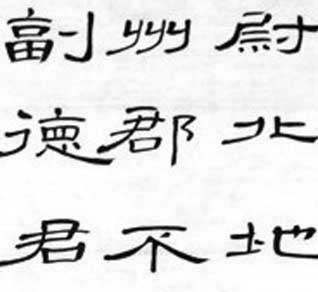 尉北地
州郡不
副德君